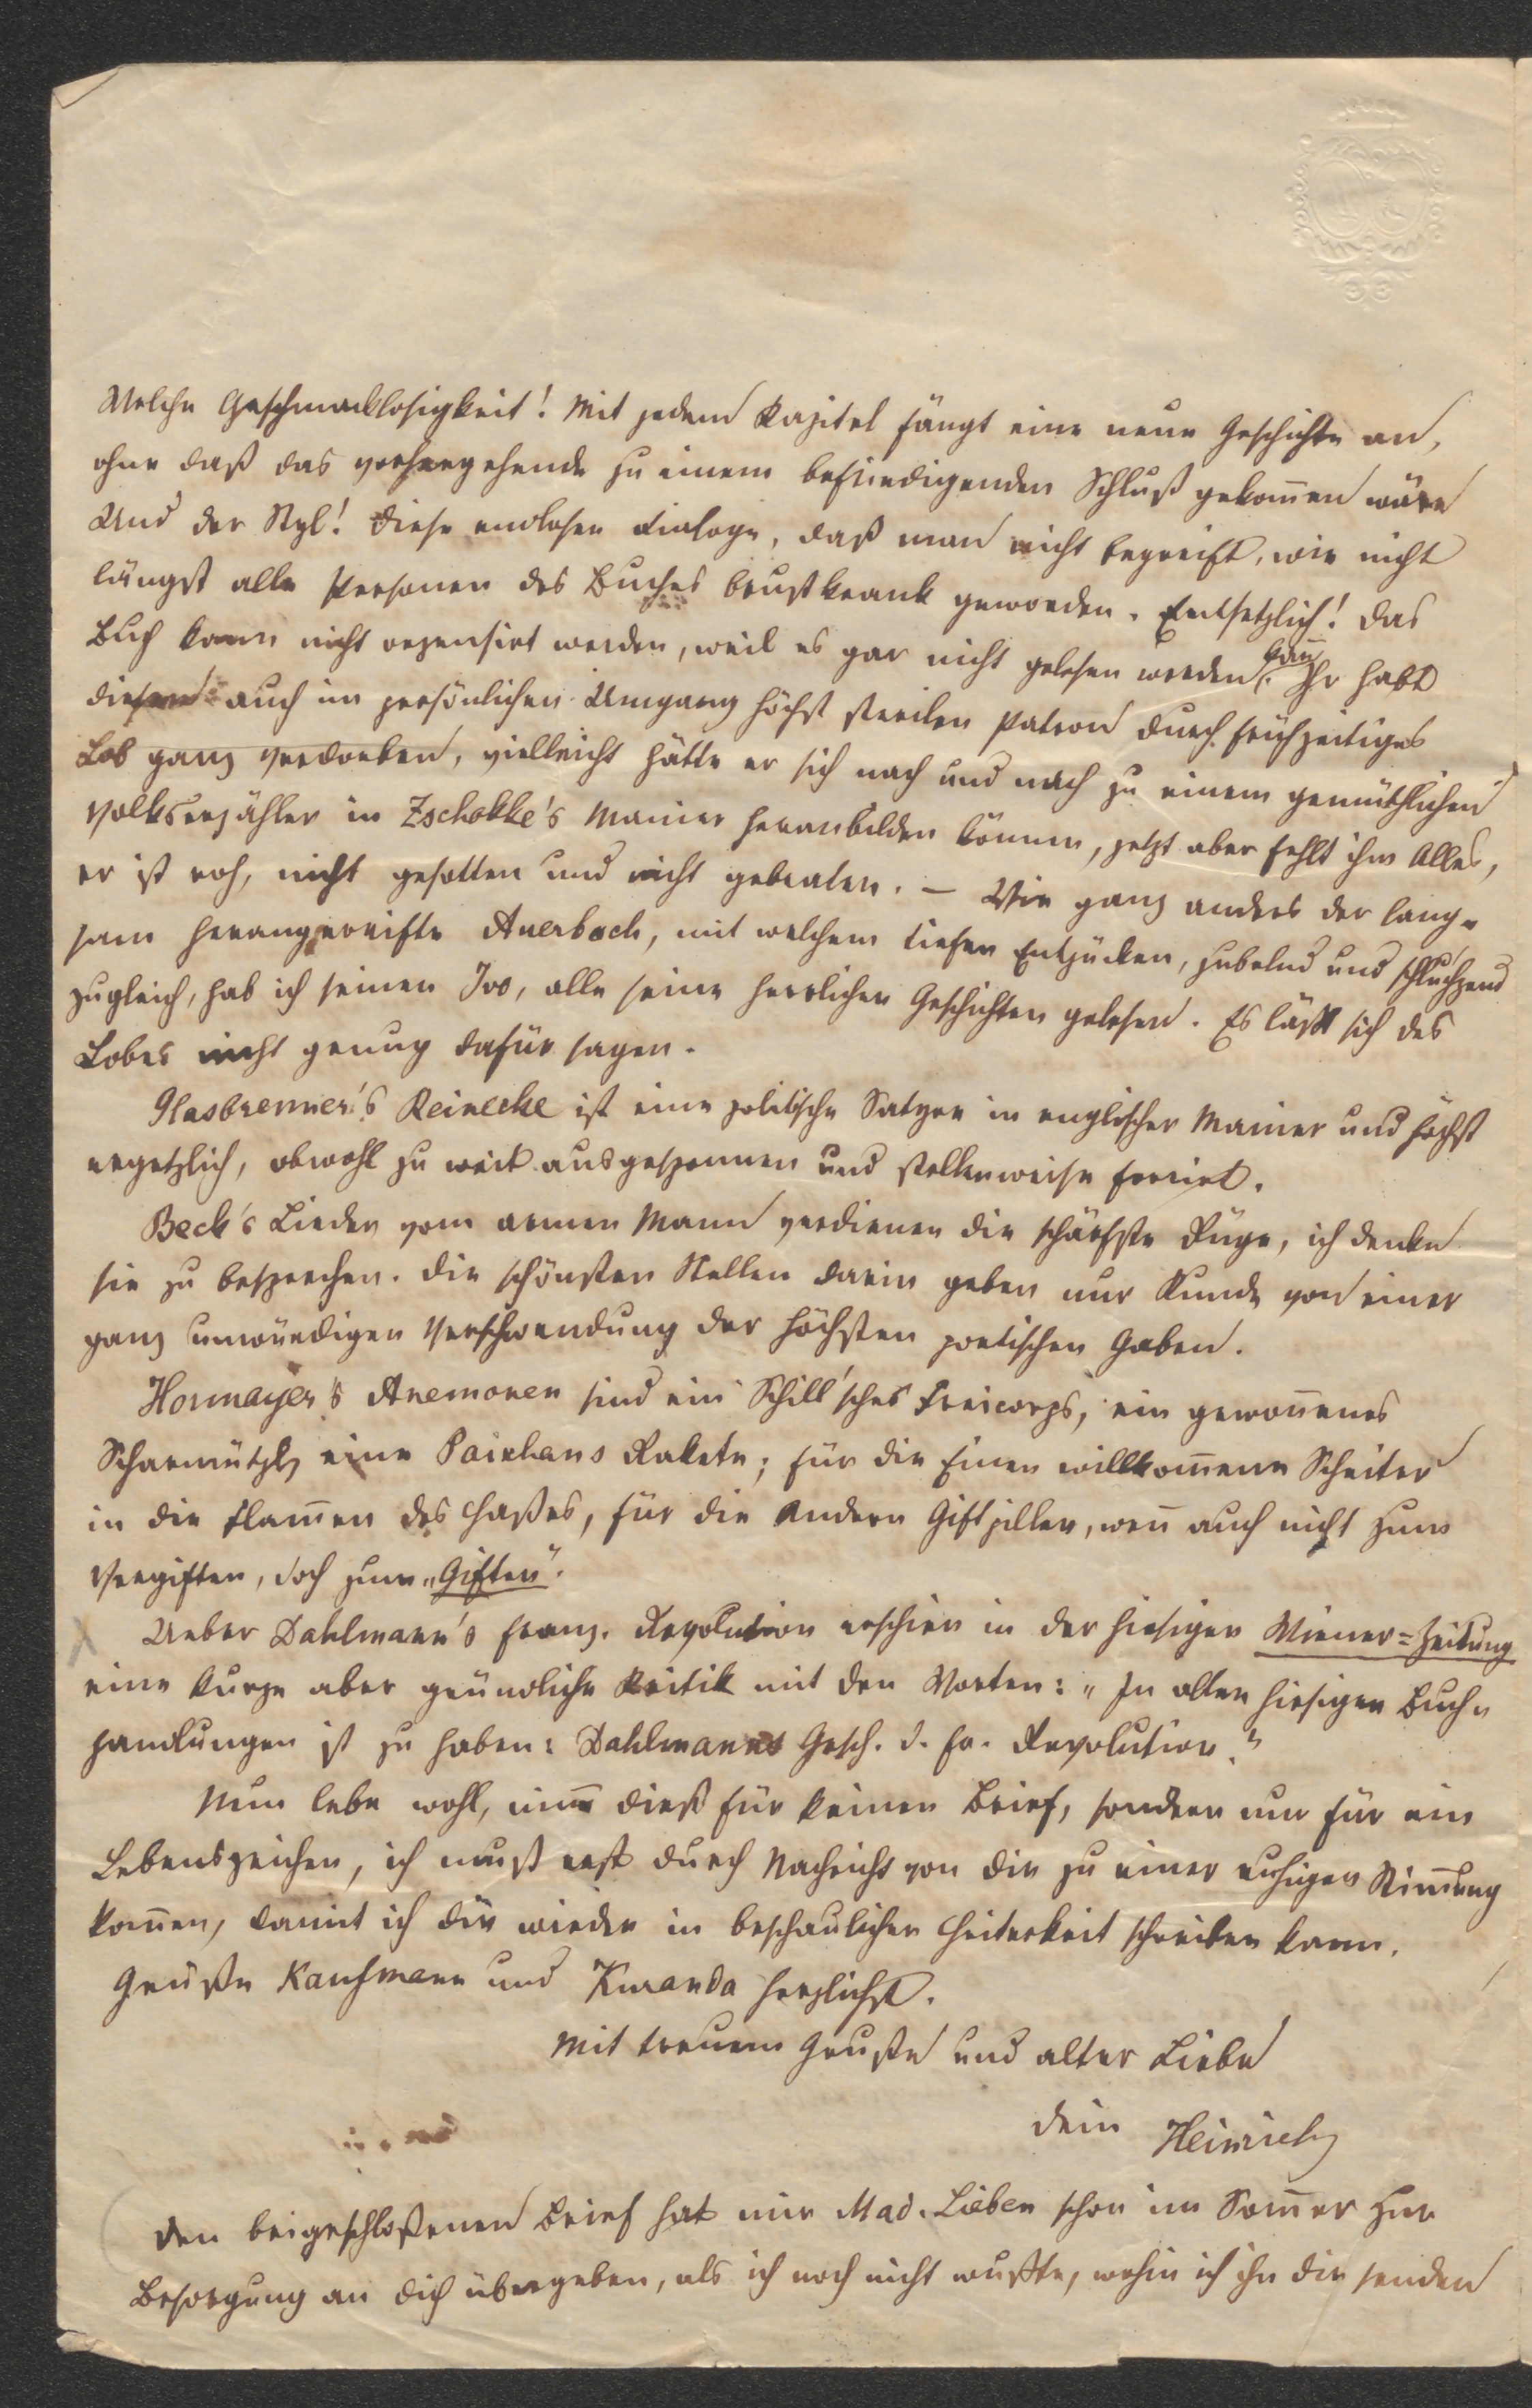 Welche Geschmacklosigkeit! Mit jedem Kapitel fängt eine neue Geschichte an,
ohne daß das vorhergehende zu einem befriedigenden Schluß gekom̅en wäre
Und der Styl! Diese endlosen Dialoge, daß man nicht begreift, wie nicht
längst alle Personen des Buches brustkrank geworden. Entsetzlich! Das
Buch kann nicht rezensirt werden, weil es gar nicht gelesen werden kan̅. Ihr habt
diesen auch im persönlichen Umgang höchst sterilen Patron durch frühzeitiges
Lob ganz verdorben, vielleicht hätte er sich nach und nach zu einem gemüthlichen
Volkserzähler in Zschokke's Manier heranbilden können, jetzt aber fehlt ihm Alles,
er ist roh, nicht gesotten und nicht gebraten. – Wie ganz anders der lang=
sam herangereifte Auerbach, mit welchem tiefen Entzücken, jubelnd und schluchzend
zugleich, hab ich seinen Ivo, alle seine herrlichen Geschichten gelesen. Es läßt sich des
Lobes nicht genug dafür sagen.
Glasbrenner's Reinecke ist eine politische Satyre in englischer Manier und höchst
ergetzlich, obwohl zu weit ausgesponnen und stellenweise forcirt.
Beck's Lieder vom armen Mann verdienen die schärfste Rüge, ich denke
sie zu besprechen. Die schönsten Stellen darin geben nur Kunde von einer
ganz unwürdigen Verschwendung der höchsten poetischen Gaben.
Hormayer's Anemonen sind ein Schill'sches Freicorps, ein gewon̅enes
Scharmützl, eine Paixhans Rakete; für die Einen willkom̅ene Scheiter
in die Flam̅en des Haßes, für die Andern Giftpillen, wen̅ auch nicht zum
Vergiften, doch zum „Giften“.
Ueber Dahlmann's franz. Revolution erschien in der hiesigen Wiener=Zeitung
eine kurze aber gründliche Kritik mit den Worten: „In allen hiesigen Buch=
handlungen ist zu haben: Dahlmanns Gesch. d. fr. Revolution.“
Nun lebe wohl, nim̅ dieß für keinen Brief, sondern nur für ein
Lebenszeichen, ich muß erst durch Nachricht von dir zu einer ruhigen Stim̅ung
kom̅en, damit ich dir wieder in beschaulicher Heiterkeit schreiben kann.
Grüße Kaufmann und Kuranda herzlichst.
Mit treuem Gruße und alter Liebe
Dein Heinrich
Den beigeschloßenen Brief hat mir Mad. Lieben schon im Som̅er zur
Besorgung an dich übergeben, als ich noch nicht wußte, wohin ich ihn dir senden